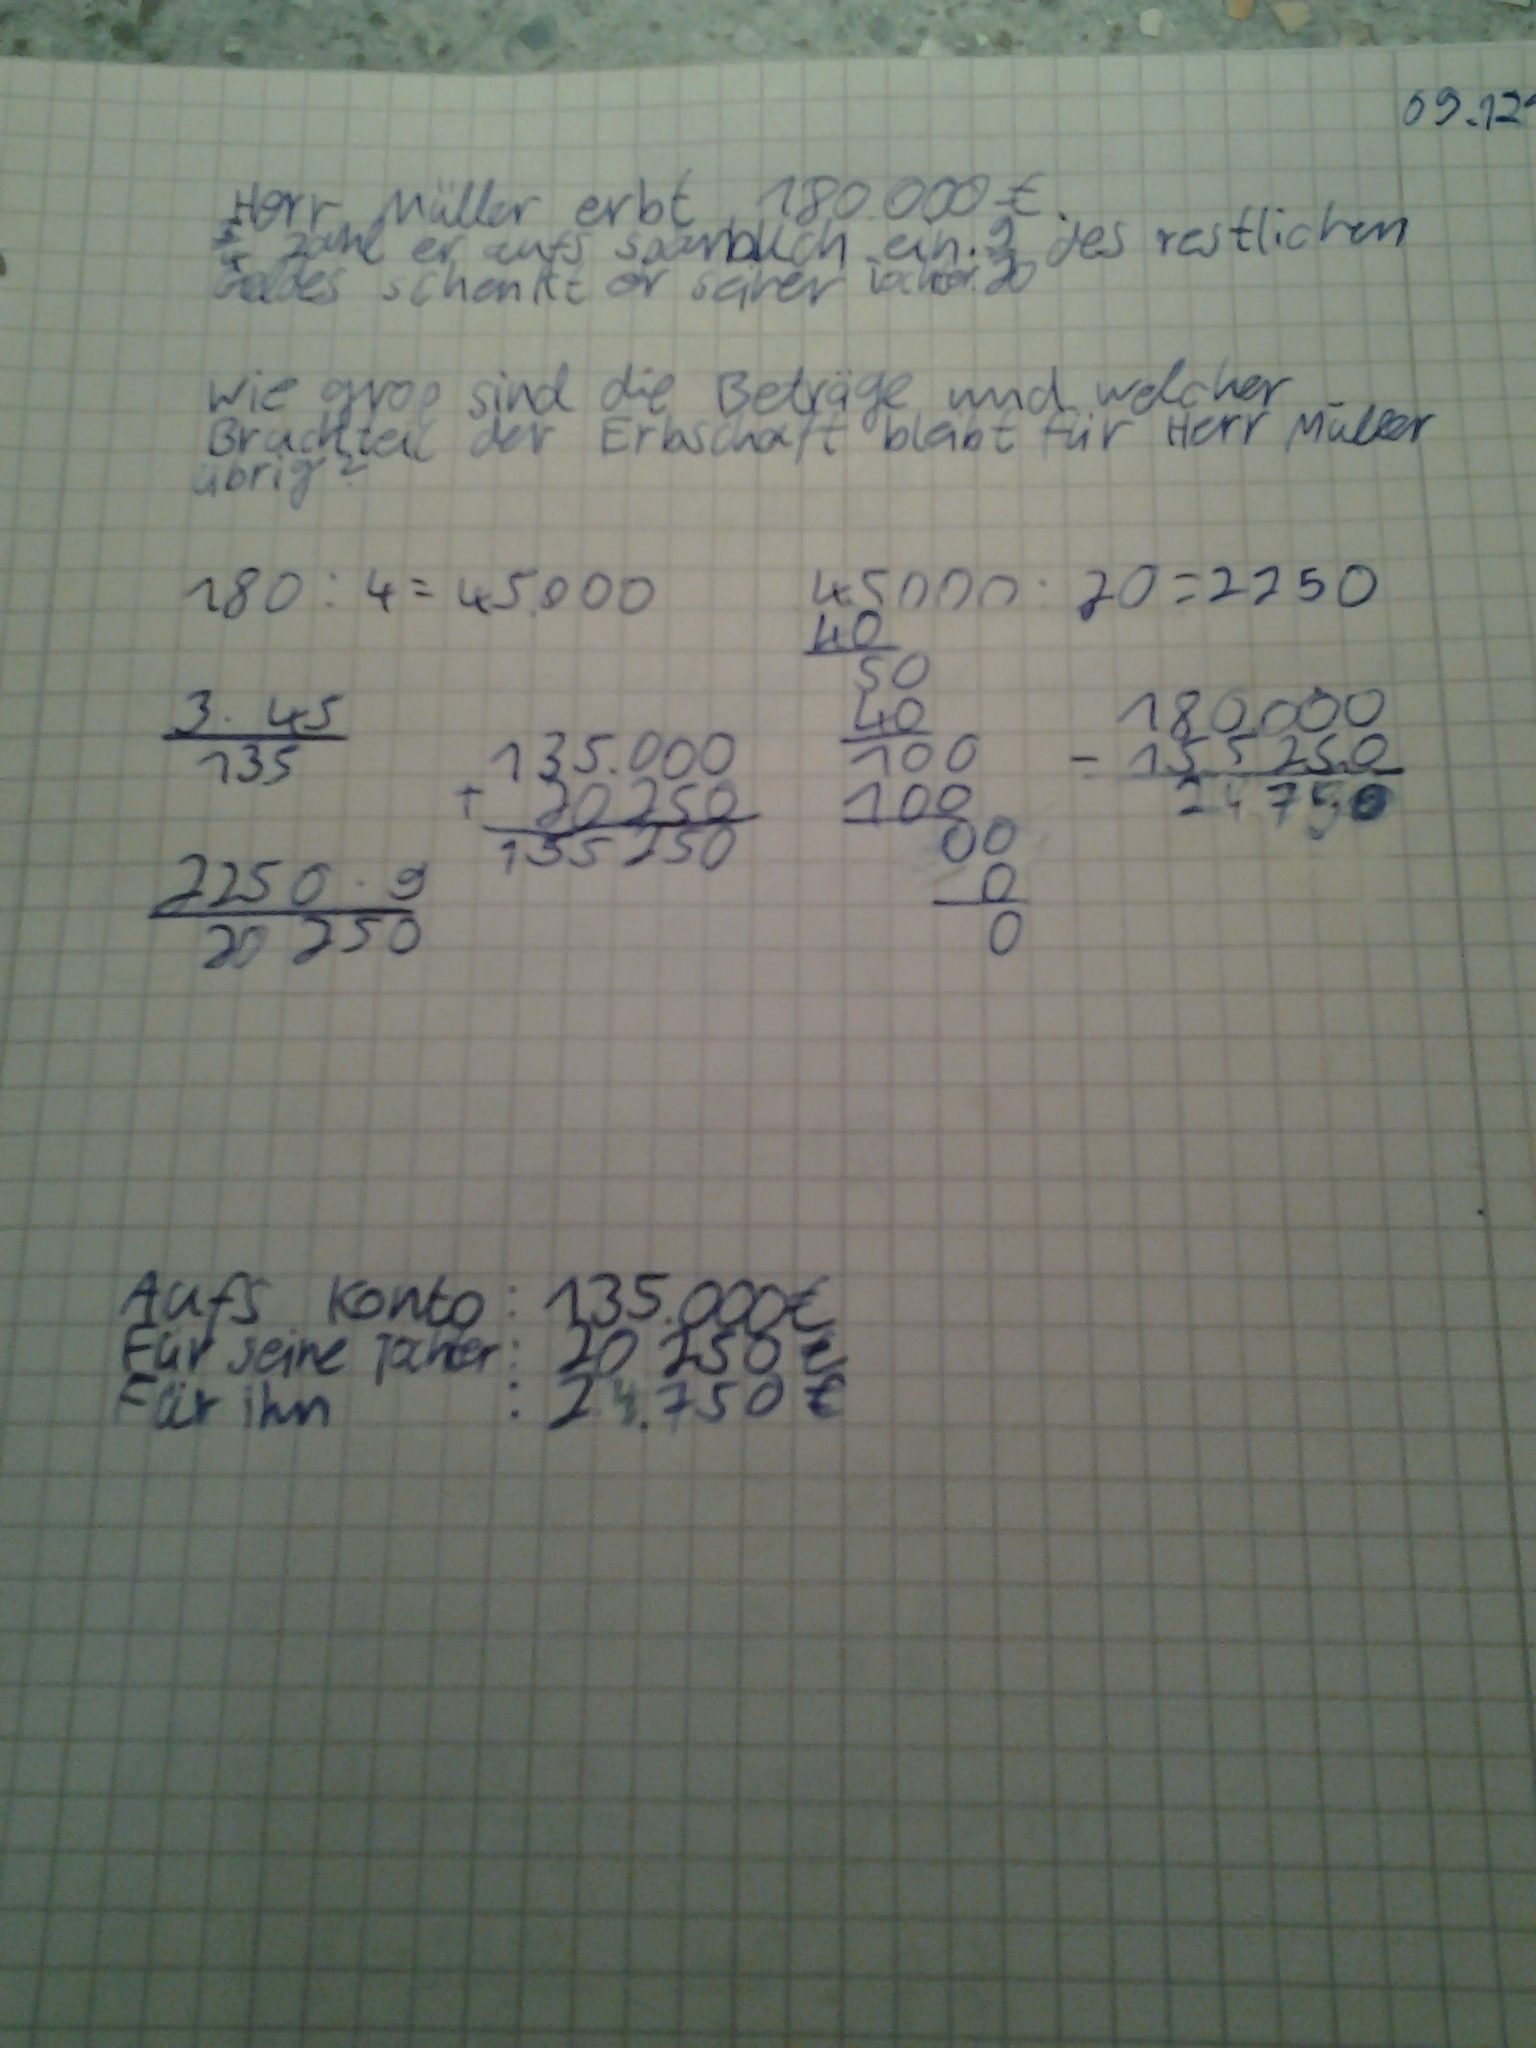 09.12
Herr Müller erbt 180.000 €.
3/4 zahl er aufs sparbuch ein. 9/20 des restlichen
Geldes schenkt er seiner Tochter.
Wie groß sind die Beträge und welcher
Bruchteil der Erbschaft bleibt für Herr Müller
übrig?
180 : 4 = 45.000
45000 : 20 = 2250
40
50
40
100
100
00
0
0
3 · 45
135
135.000
+ 20 250
155 250
180.000
- 155 250
24 750
2250 · 9
20 250
Aufs Konto : 135.000 €
Für seine Tochter : 20 250 €
Für ihn : 24.750 €